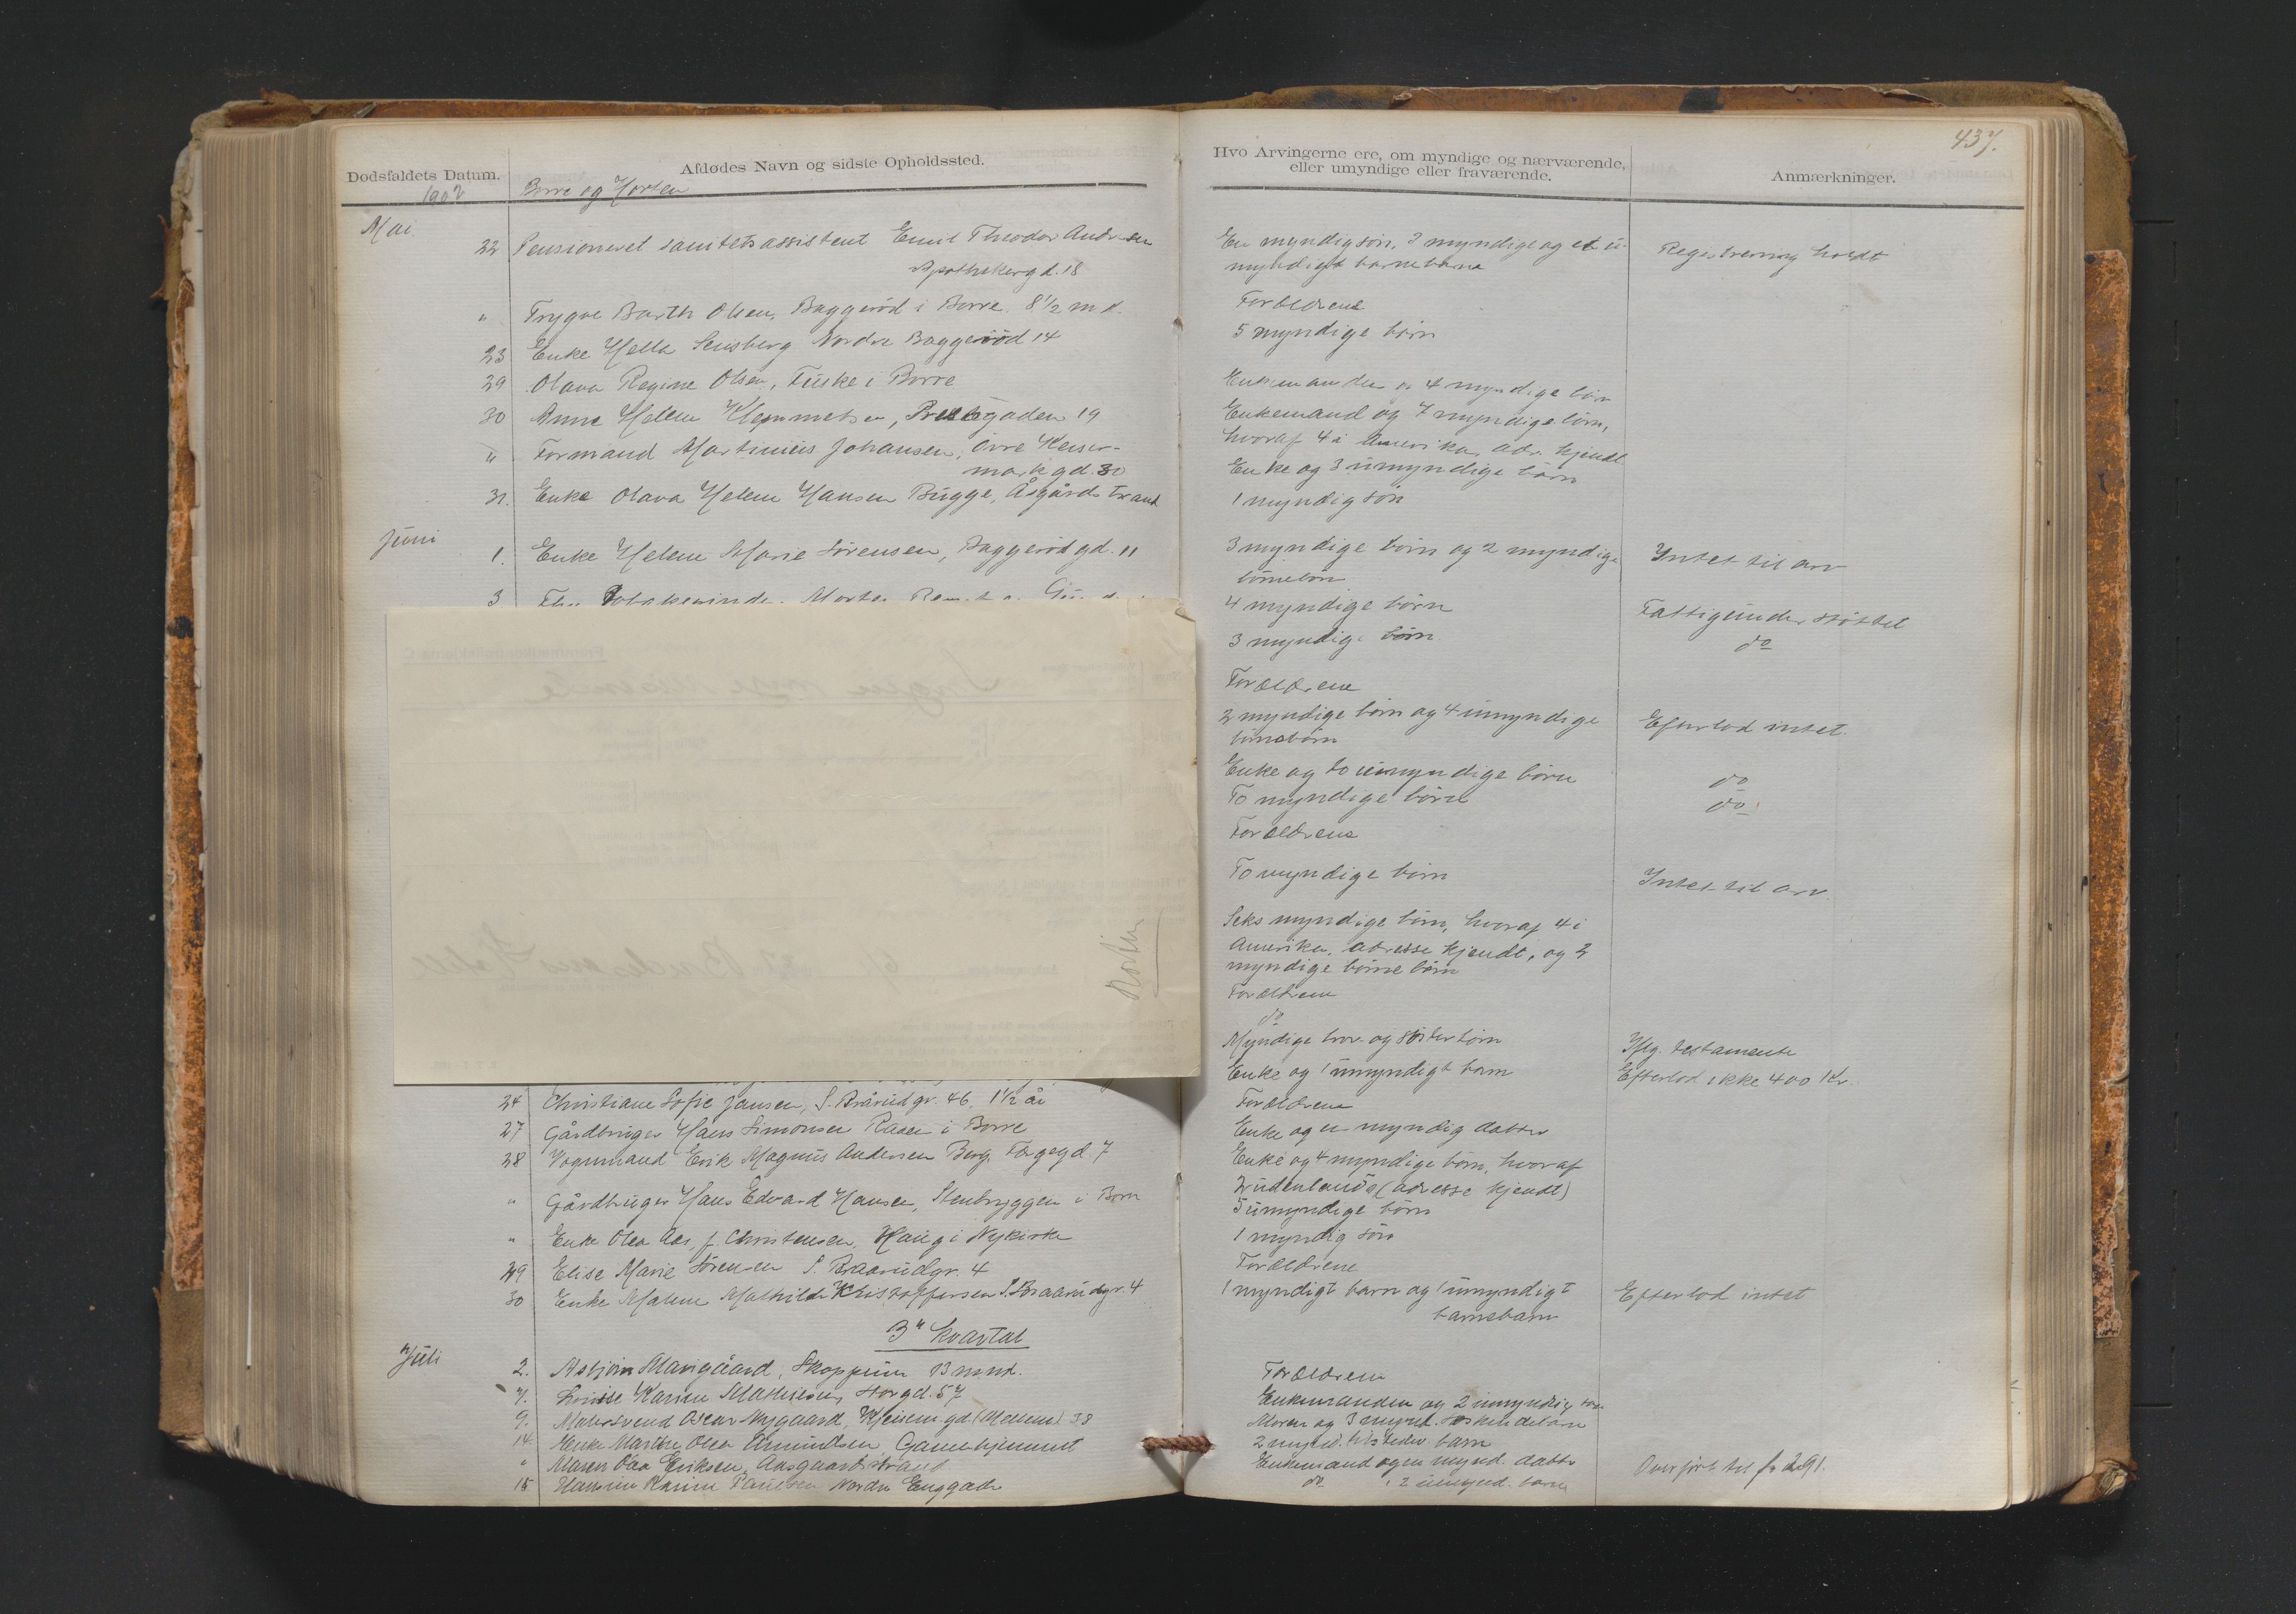 437.
Dødsfaldets Datum.
Afdødes Navn og sidste Opholdssted.
Hvo Arvingerne ere, om myndige og nærværende,
eller umyndige eller fraværende.
Anmærkninger.
1902
Borre og Horten
Mai
22 Pensioneret sanitetsassistent Emil Theodor Andersen
Apothekergd. 18
" Trygve Barth Olsen, Baggerød i Borre. 8 1/2 md.
23 Enke Hella Sensberg Nordre Baggerød 14
29 Olava Regine Olsen, Fuske i Borre
30 Anne Helene Klemmetsen, Prestegaden 19
" Formand Martinius Johansen, Øvre Keiser-
markgd. 30
31. Enke Olava Helene Hansen Bugge, Åsgårdstrand
Juni
1. Enke Helene Marie Sørensen, Baggerødgd. 11
3
24 Christiane Sofie Jansen, S. Brårudgr. 46, 1 1/2 år
27 Gårdbruger Hans Simonsen Raaen i Borre
28 Vognmand Erik Magnus Andersen Berg. Færgegd. 7
" Gårdbruger Hans Edvard Hansen, Stenbryggen i Borre
" Enke Olea Aas, f. Christensen, Haug i Nykirke
29 Elise Marie Sørensen S. Braarudgr. 4
30 Enke Malene Mathilde Kristoffersen S. Braarudgr. 4
3" Kvartal
Juli
2. Asbjørn Mangaard, Skoppum 13 mnd.
7. Lovise Karine Mathisen, Storgd. 57
9. Malersvend Oscar Nygaard, (Mellem) 38
14. Enke Marthe Olea Amundsen, Gamlehjemmet
" Maren Olea Eriksen, Aasgaardstrand
15 Karine Paulsen Nordre Enggade
En myndig søn, 3 myndige og et u-
myndigt barnebarn
Forældrene
5 myndige børn
Enkemanden og 4 myndige børn
Enkemand og 7 myndige børn,
hvoraf 4 i Amerika, adr. kjendt
Enke og 3 umyndige børn
1 myndig søn
3 myndige børn og 2 myndige
børnebørn
4 myndige børn
3 myndige børn
Forældrene
2 myndige børn og 4 umyndige
børnebørn
Enke og to umyndige børn
To myndige børn
Forældrene
To myndige børn
Seks myndige børn, hvoraf 4 i
Amerika, adresse kjendt, og 2
myndige børnebørn
Forældrene
do
Myndige bror- og søsterbørn
Enke og 1 umyndigt barn
Forældrene
Enke og en myndig datter
Enke og 4 myndige børn, hvoraf
2 udenlands (adresse kjendt)
5 umyndige børn
1 myndig søn
Forældrene
1 myndigt barn og 1 umyndigt
barnebarn
Forældrene
Enkemanden og 2 umyndig
Moren og 3 mynd.
2 mynd. tilstedev. barn
Enkemand og en mynd. datter
do 2 umynd. barn
Registrering holdt
Intet til arv
Fattigunderstøttet
do
Efterlod intet.
do
do
Intet til arv.
Iflg. testamente
Efterlod ikke 400 Kr.
Efterlod intet
Overført til fo 291.